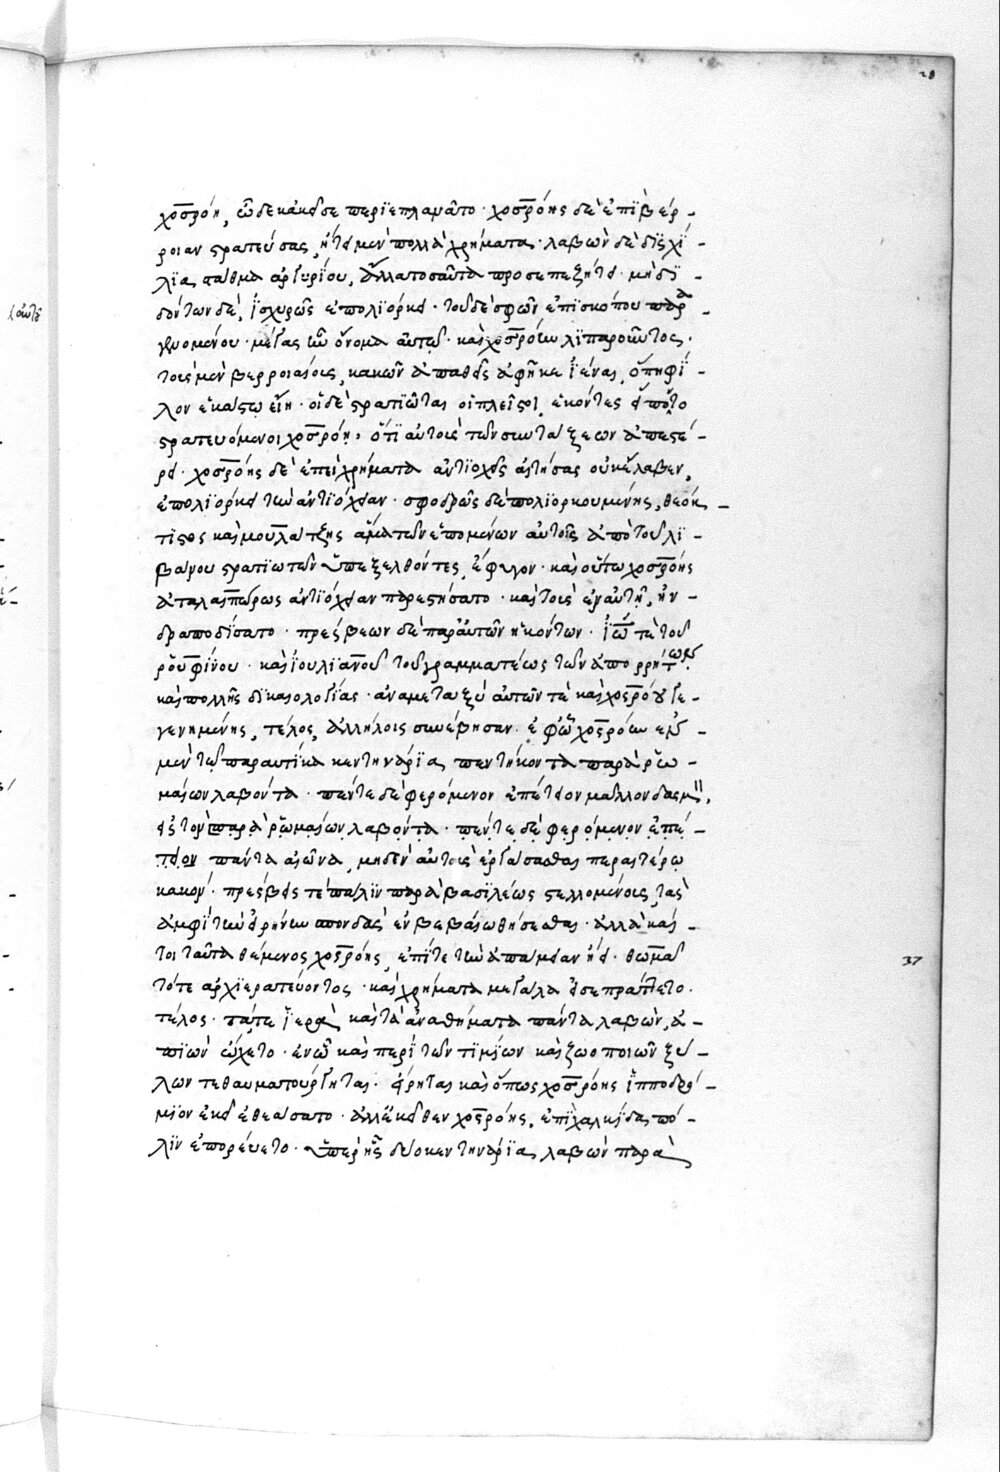 χοσρόη, ὧδε κἀκεῖσε περιεπλανᾶτο· χοσρόης δὲ ἐπὶ βέρ-
ροιαν στρατεύσας, ᾔτει μὲν πολλὰ χρήματα· λαβὼν δὲ δισχί-
λια σταθμὰ ἀργυρίου, ἄλλα τοσαῦτα προσεπεζήτει· μὴ δι-
δόντων δὲ, ἰσχυρῶς ἐπολιόρκει· τοῦ δὲ σφῶν ἐπισκόπου παρα
γενομένου· μέγας ἦν ὄνομα αὐτῷ· καὶ χοσρόην λιπαροῦντος·
τοὺς μὲν βερροιαίους, κακῶν ἀπαθεῖς ἀφῆκε ἰέναι, ὅπη φί-
λον ἑκάστῳ εἴη· οἱ δὲ στρατιῶται οἱ πλεῖστοι, ἑκόντες εἵποντο
στρατευόμενοι χοσρόῃ, ὅτι αὐτοὺς τῶν συντάξεων ἀπεστέ-
ρει· χοσρόης δὲ ἐπεὶ χρήματα ἀντιοχεῖς αἰτήσας οὐκ ἔλαβεν,
ἐπολιόρκει τὴν ἀντιόχειαν· σφοδρῶς δὲ πολιορκουμένης, θεόκ-
τιστος καὶ μουλάτζης ἅμα τῶν ἑπομένων αὐτοῖς ἀπὸ τοῦ λι-
βάνου στρατιωτῶν ὑπεξελθόντες, ἔφυγον· καὶ οὕτω χοσρόης
ἀταλαιπώρως ἀντιόχειαν παρεστήσατο· καὶ τοὺς ἐν αὐτῇ, ἠν-
δραποδίσατο· πρέσβεων δὲ παρ' αὐτῶν ἡκόντων· ἰω τὲ τοῦ
ῥουφίνου· καὶ ἰουλιανοῦ τοῦ γραμματέως τῶν ἀπορρήτων
καὶ πολλῆς δικαιολογίας· ἀναμεταξὺ αὐτῶν τὲ καὶ χοσρόου γε-
γενημένης, τέλος, ἀλλήλοις συνέβησαν· ἐφ' ᾧ χοσρόην
μὲν τῷ παραυτίκα κεντηνάρια πεντήκοντα παρὰ ῥω-
μαίων λαβόντα· πέντε δὲ φερόμενον ἐπέτειον
παρὰ ῥωμαίων λαβόντα· πέντε δὲ φερόμενον ἐπέ-
τειον πάντα αἰῶνα, μηδὲν αὐτοὺς ἐργάσασθαι περαιτέρω
κακόν· πρέσβεις τὲ πάλιν παρὰ βασιλέως στελλομένους, τὰς
ἀμφὶ τὴν εἰρήνην σπονδὰς ἐν βεβαίῳ θήσεσθαι· ἀλλὰ καί-
τοι ταῦτα θέμενος χοσρόης, ἐπί τε τὴν ἀπάμειαν ᾔει· θωμᾶ
τότε ἀρχιερατεύοντος· καὶ χρήματα μεγάλα εἰσεπράττετο·
τέλος· τά τε ἱερὰ καὶ τὰ ἀναθήματα πάντα λαβὼν, ἀ-
πιὼν ᾤχετο· ἐν ᾧ καὶ περὶ τῶν τιμίων καὶ ζωοποιῶν ξύ-
λων τεθαυματούργηται· εἴρηται καὶ ὅπως χοσρόης ἱπποδρό-
μιον ἐκεῖ ἐθεάσατο· ἀλλ' ἐκεῖθεν χοσρόης, ἐπὶ χαλκίδα πό-
λιν ἐπορεύετο· ὑπὲρ ἧς δύο κεντηνάρια λαβὼν παρὰ
37